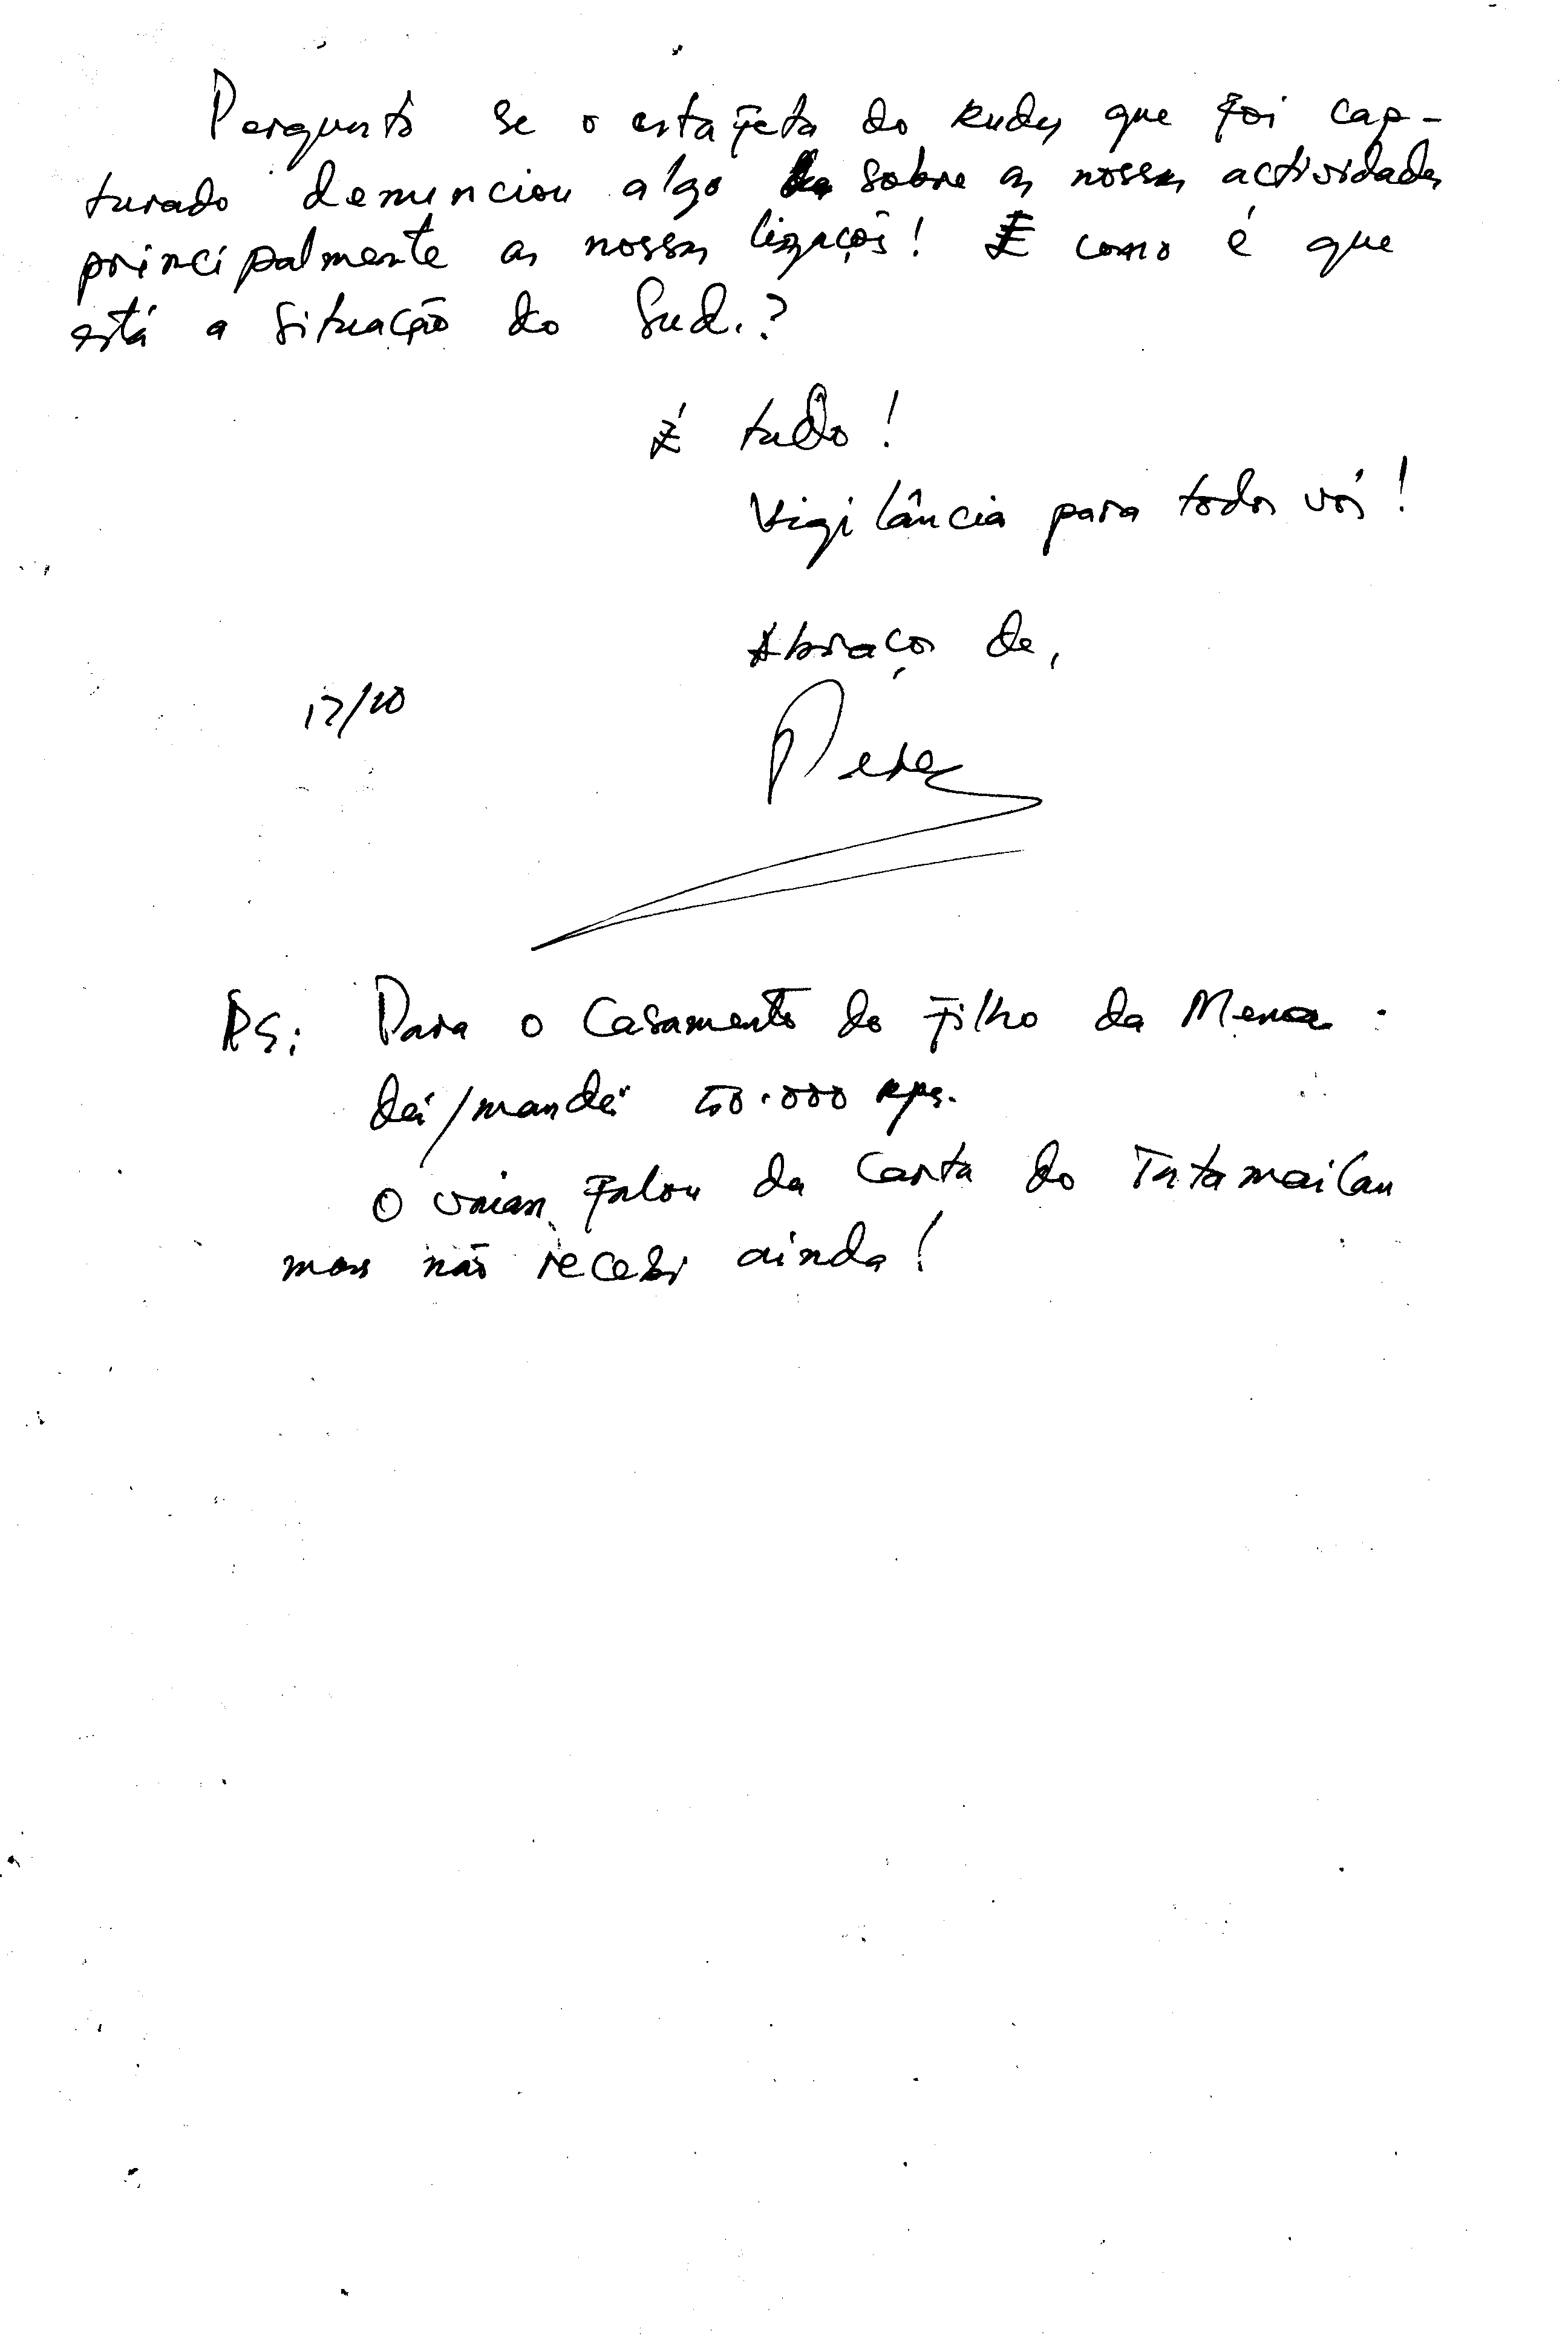 Pergunto se o estafeta do Rudy que foi cap-
turado denunciou algo sobre as nossas actividades
principalmente as nossas ligações! E como é que
está a situação do Sud.?
É tudo!
Vigilância para todos vós!
Abraços de,
17/10
PS: Para o Casamento do filho da Mena
dei/mandei 50.000 rps.
O falou da Carta do Tatamailau
mas não recebi ainda!